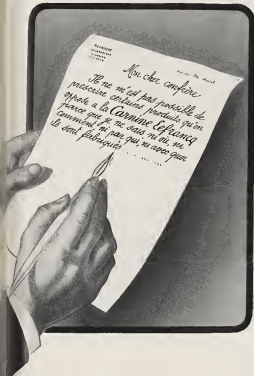 Mon cher confrère
Il ne m'est pas possible de
prescrire certains produits qu'on
oppose a la Carnine Lefrancq
parce que je ne sais ni où, ni
comment ni par qui, ni avec quoi
ils sont fabriqués